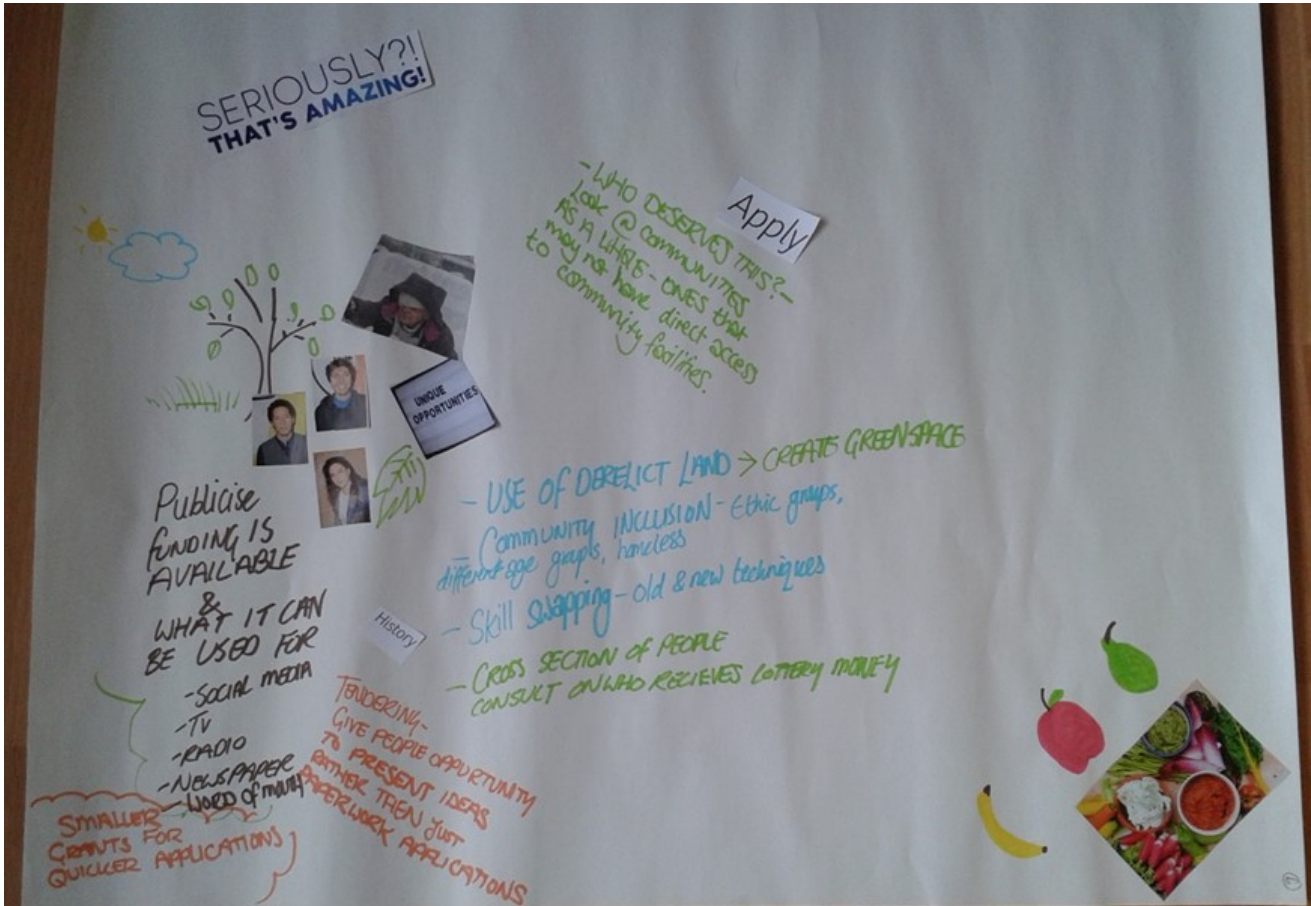 SERIOUSLY?!
THAT'S AMAZING!
Apply
- WHO DESERVES THIS? -
LOOK @ COMMUNITIES
AS A WHOLE - ONES that
may not have direct access
to community facilities.
UNIQUE
OPPORTUNITIES
Publicise
FUNDING IS
AVAILABLE
&
WHAT IT CAN
BE USED FOR
- SOCIAL MEDIA
- TV
- RADIO
- NEWSPAPER
- WORD OF MOUTH
- USE OF DERELICT LAND > CREATE GREENSPACE
- COMMUNITY INCLUSION - Ethic groups,
different age groups, homeless
- Skill swapping - old & new techniques
- CROSS SECTION OF PEOPLE
CONSULT ON WHO RECIEVES LOTTERY MONEY
History
TENDERING -
GIVE PEOPLE OPPURTUNITY
TO PRESENT IDEAS
RATHER THEN JUST
PAPERWORK APPLICATIONS
SMALLER
GRANTS FOR
QUICKER APPLICATIONS